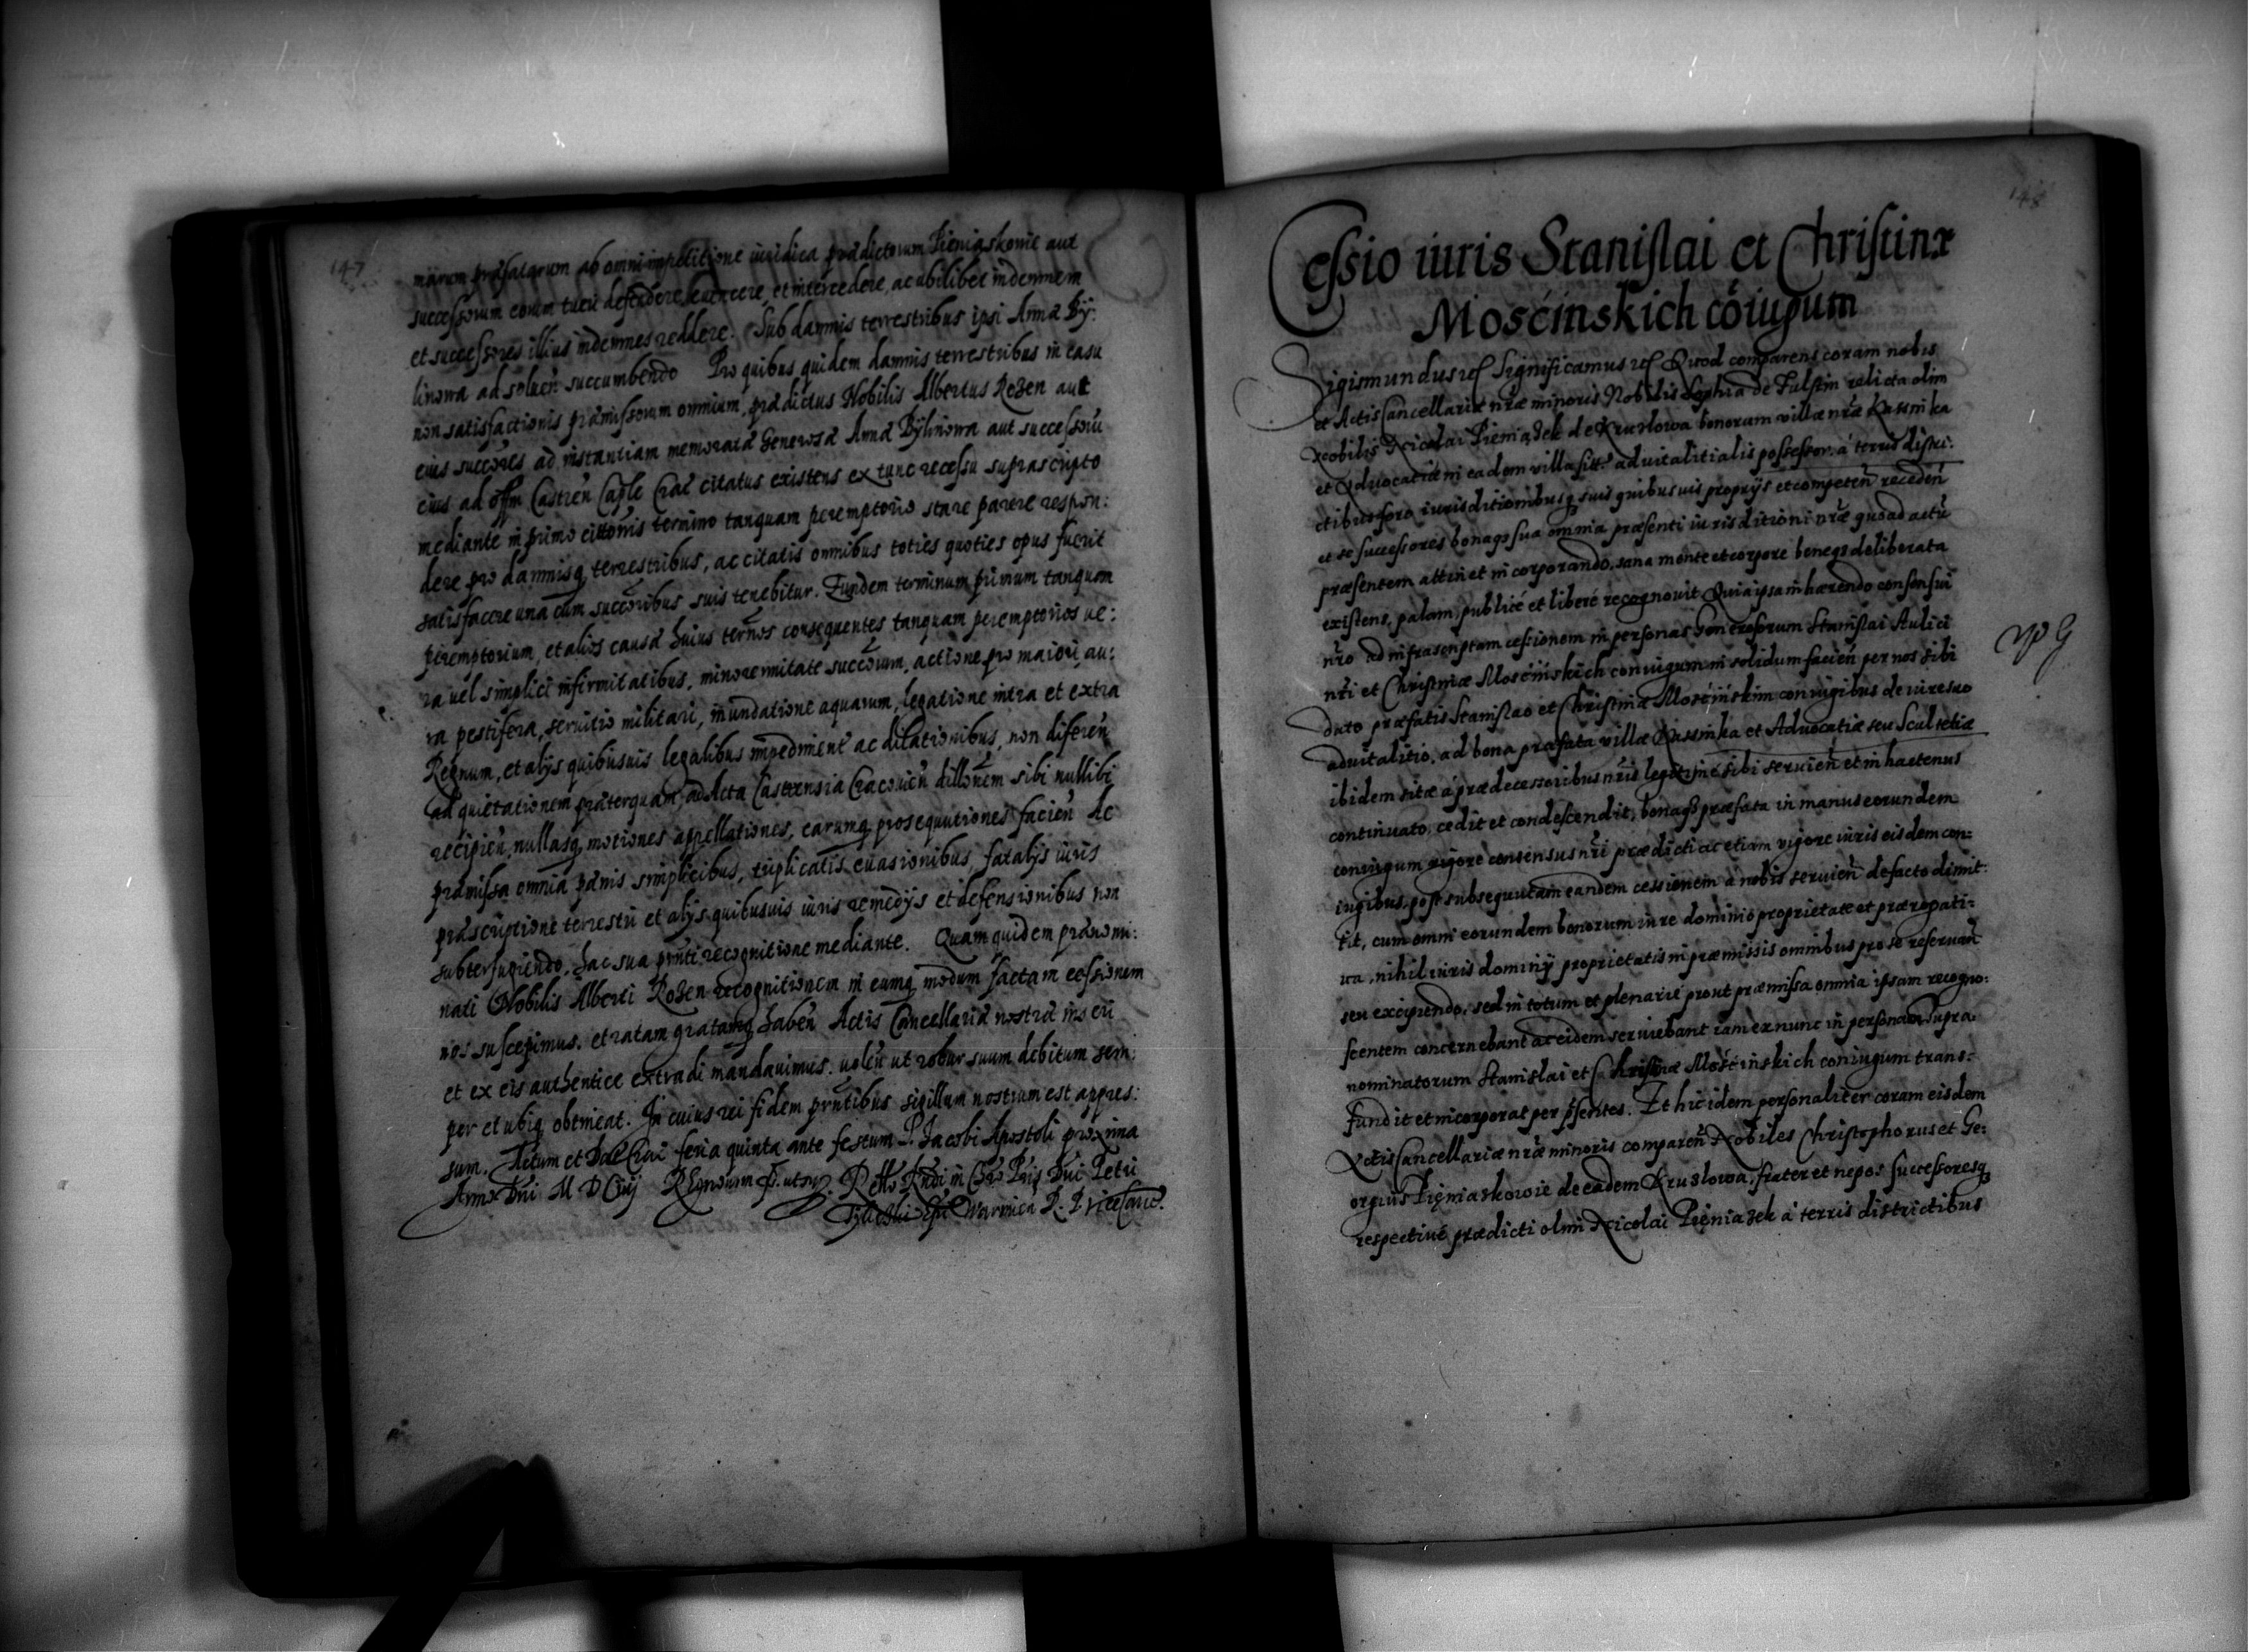 147
marum præfatarum ab omni impetitione iuridica prædictorum Pieniąskowie aut
successorum eorum tueri defendere, euincere, et intercedere, ac ubilibet indemnem
et successores illius indemnes reddere. Sub damnis terrestribus ipsi Annæ By:
linowa ad soluen̄ succumbendo Pro quibus quidem damnis terrestribus in casu
non satisfactionis præmissorum omnium, prædictus Nobilis Albertus Rozen aut
eius succ̄ores ad instantiam memoratæ Generosæ Annæ Bylinowa aut successorū
eius ad off̄m Castren̄ Cap̄le Crac̄ citatus existens ex tunc recessu suprascripto
mediante in primo citt̄onis termino tanquam peremptorio stare parere respon:
dere pro damnisq̨ terrestribus, ac citatis omnibus toties quoties opus fuerit
satisfacere una cum succ̄oribus suis tenebitur. Eundem terminum primum tanquam
peremptorium, et alios causæ huius term̄os consequentes tanquam peremptorios ue:
ra uel simplici infirmitatibus, minorennitate succ̄orum, actione pro maiori, au:
ra pestifera, seruitio militari, inundatione aquarum, legatione intra et extra
Regnum, et alijs quibusuis legalibus impediment̄ ac dilationibus, non diferen̄
ad quietationem præterquam, ad Acta Castrensia Cracouien̄ dill̄onem sibi nullibi
recipien̄, nullasq̨ motiones appellationes, earumq̨ prosequutiones facien̄ Ac
præmissa omnia pænis simplicibus, triplicatis euasionibus, fatalijs iuris
præscriptione terrestri et alijs quibusuis iuris remedijs et defensionibus non
subterfugiendo, hac sua prn̄ti recognitione mediante. Quam quidem prænomi:
nati Nobilis Alberti Rozen recognitionem in eumq̨ modum factam cessionem
nos suscepimus, et ratam gratamq̨ haben̄ Actis Cancellariæ nostræ inseri
et ex eis authentice extradi mandauimus. uolen̄ ut robur suum debitum sem:
per et ubiq̨ obtineat. In cuius rei fidem prn̄tibus sigillum nostrum est appres:
sum. Actum et Dat Crac̄ feria quinta ante festum S. Jacobi Apostoli proxima
Anno Dn̄i M D C iij
148
Cessio iuris Stanislai et Christinæ
Mośćinskich cōiugum
Sigismundus etc̄ Significamus etc̄ Quod comparens coram nobis
et Actis Cancellariæ nr̄æ minoris Nobilis Sophia de Fulstin relicta olim
Nobilis Nicolai Pieniązek de Kruzlowa bonorum villæ nr̄æ Kasinka
et Aduocatiæ in eadem villa sitt̄ aduitalitialis possessor. á terris distri:
ctibus foro iurisditionibusq̨ suis quibusuis proprijs et competen̄ receden̄
et se successores bonaq̨ sua omnia præsenti iurisditioni nr̄æ quoad actū
præsentem attinet incorporando, sana mente et corpore beneq̨ deliberata
existens, palam, publicé et liberé recognouit. Quia ipsa inhærendo consensui
nr̄o ad infrascriptam cessionem in personas Generosorum Stanislai Aulici
nr̄i et Christinæ Mośćińskich coniugum in solidum facien̄ per nos sibi
dato præfatis Stanislao et Christinæ Mośćińskim coniugibus de iure suo
aduitalitio, ad bona præfata villæ Kassinka et Aduocatiæ seu Scultetiæ
ibidem sitæ á prædecessoribus nr̄is legitimé sibi seruien̄ et in hactenus
continuato, cedit et condescendit, bonaq̨ præfata in manus eorundem
coniugum vigore consensus nr̄i prædicti ac etiam vigore iuris eisdem con=
iugibus, post subsequutam eandem cessionem á nobis seruien̄ de facto dimit:
tit, cum omni eorundem bonorum iure dominio proprietate et prærogati=
ua, nihil iuris dominij proprietatis in præmissis omnibus pro se reseruan̄
seu excipiendo, sed in totum et plenarié prout præmissa omnia ipsam recogno:
scentem concernebant ac eidem seruiebant iam ex nunc in personam supra
nominatorum Stanislai et Christinæ Mośćinskich coniugum trans=
fundit et incorporat per p̄sentes. Et hic idem personaliter coram eisdem
Actis Cancellariæ nr̄æ minoris comparen̄ Nobiles Christophorus et Ge:
orgius Pieniaskowie de eadem Kruzlowa, frater et nepos successoresq̨
respectiué prædicti olim Nicolai Pieniazek á terris districtibus